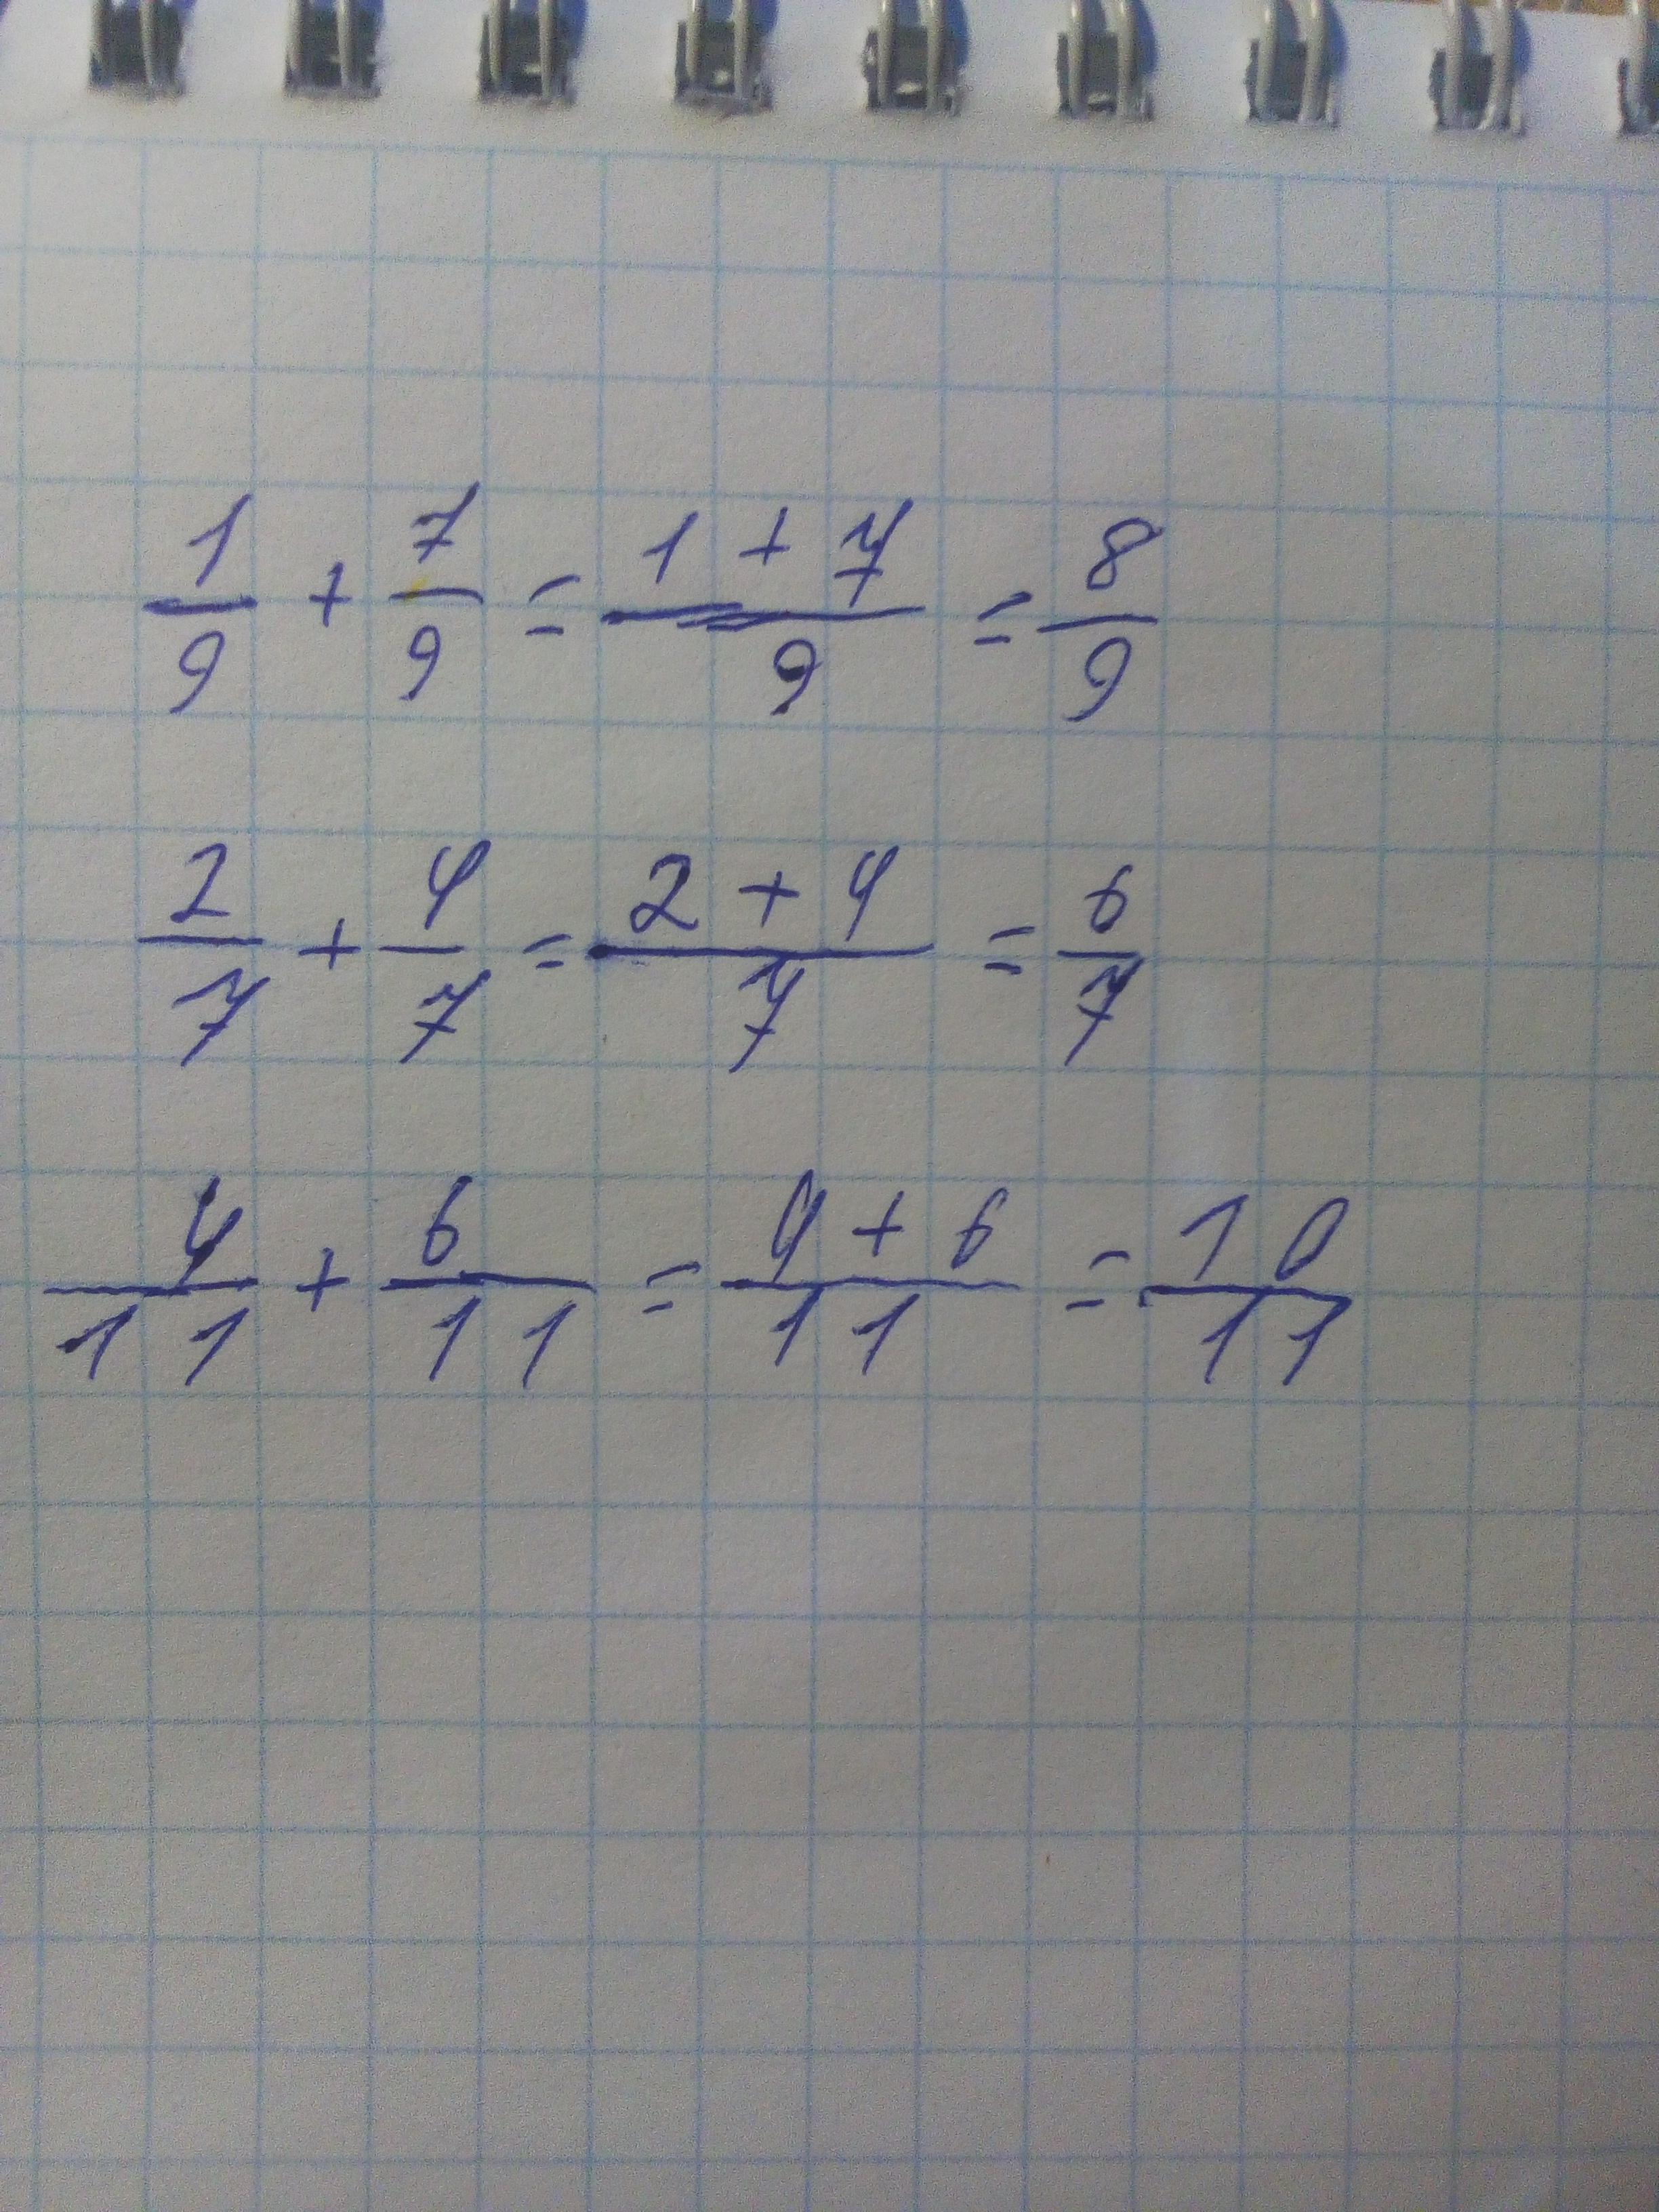 1/9 + 7/9 = (1 + 7)/9 = 8/9
2/7 + 4/7 = (2 + 4)/7 = 6/7
4/11 + 6/11 = (4 + 6)/11 = 10/11